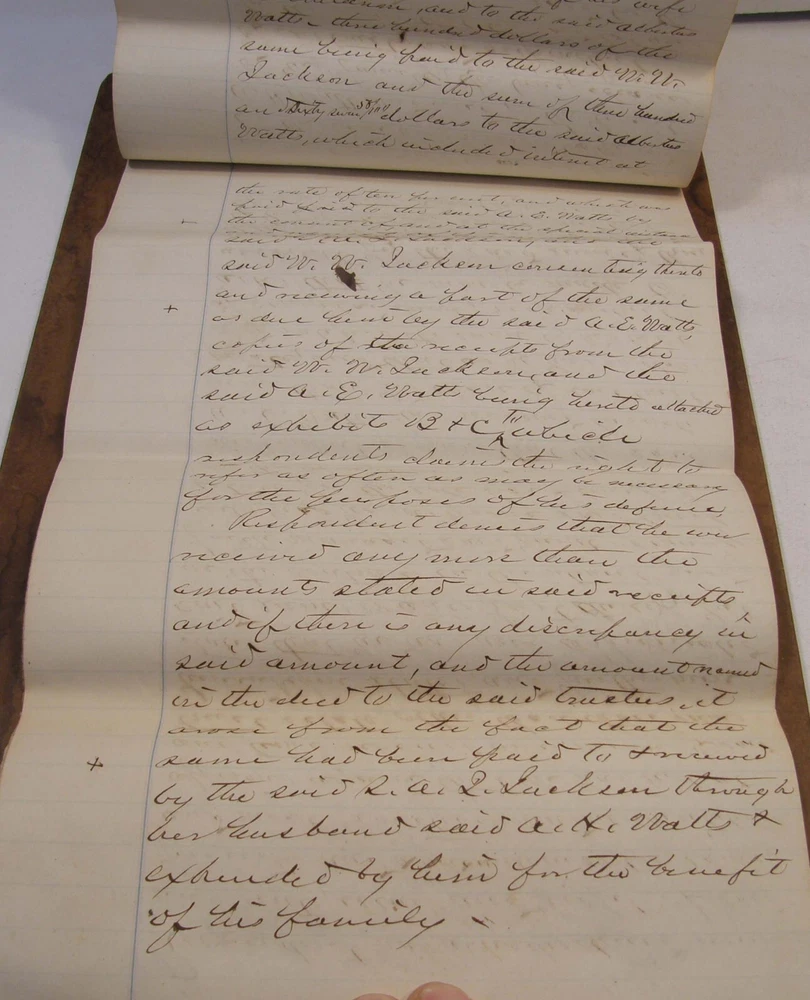 wife
and to the said Albertus
Watts three hundred dollars of the
same being paid to the said W. W.
Jackson and the sum of three hundred
and sixty seven 50/100 dollars to the said Albertus
Watts, which included interest at
the rate of ten per cent, and which was
paid to the said A. E. Watts by
the consent of and at the special instance
said
said W. W. Jackson consenting thereto
and receiving a part of the same
as due him by the said A. E. Watts,
copies of the receipts from the
said W. W. Jackson, and the
said A. E. Watts being hereto attached
as exhibits B & C to which
respondents claim the right to
refer as often as may be necessary
for the purposes of his defence,
Respondent denies that he ever
received any more than the
amounts stated in said receipts,
and if there is any discrepancy in
said amount, and the amount named
in the deed to the said trustees, it
arose from the fact that the
same had been paid to & received
by the said S. A. Q. Jackson through
her husband said A. H. Watts &
expended by him for the benefit
of his family -
+
+